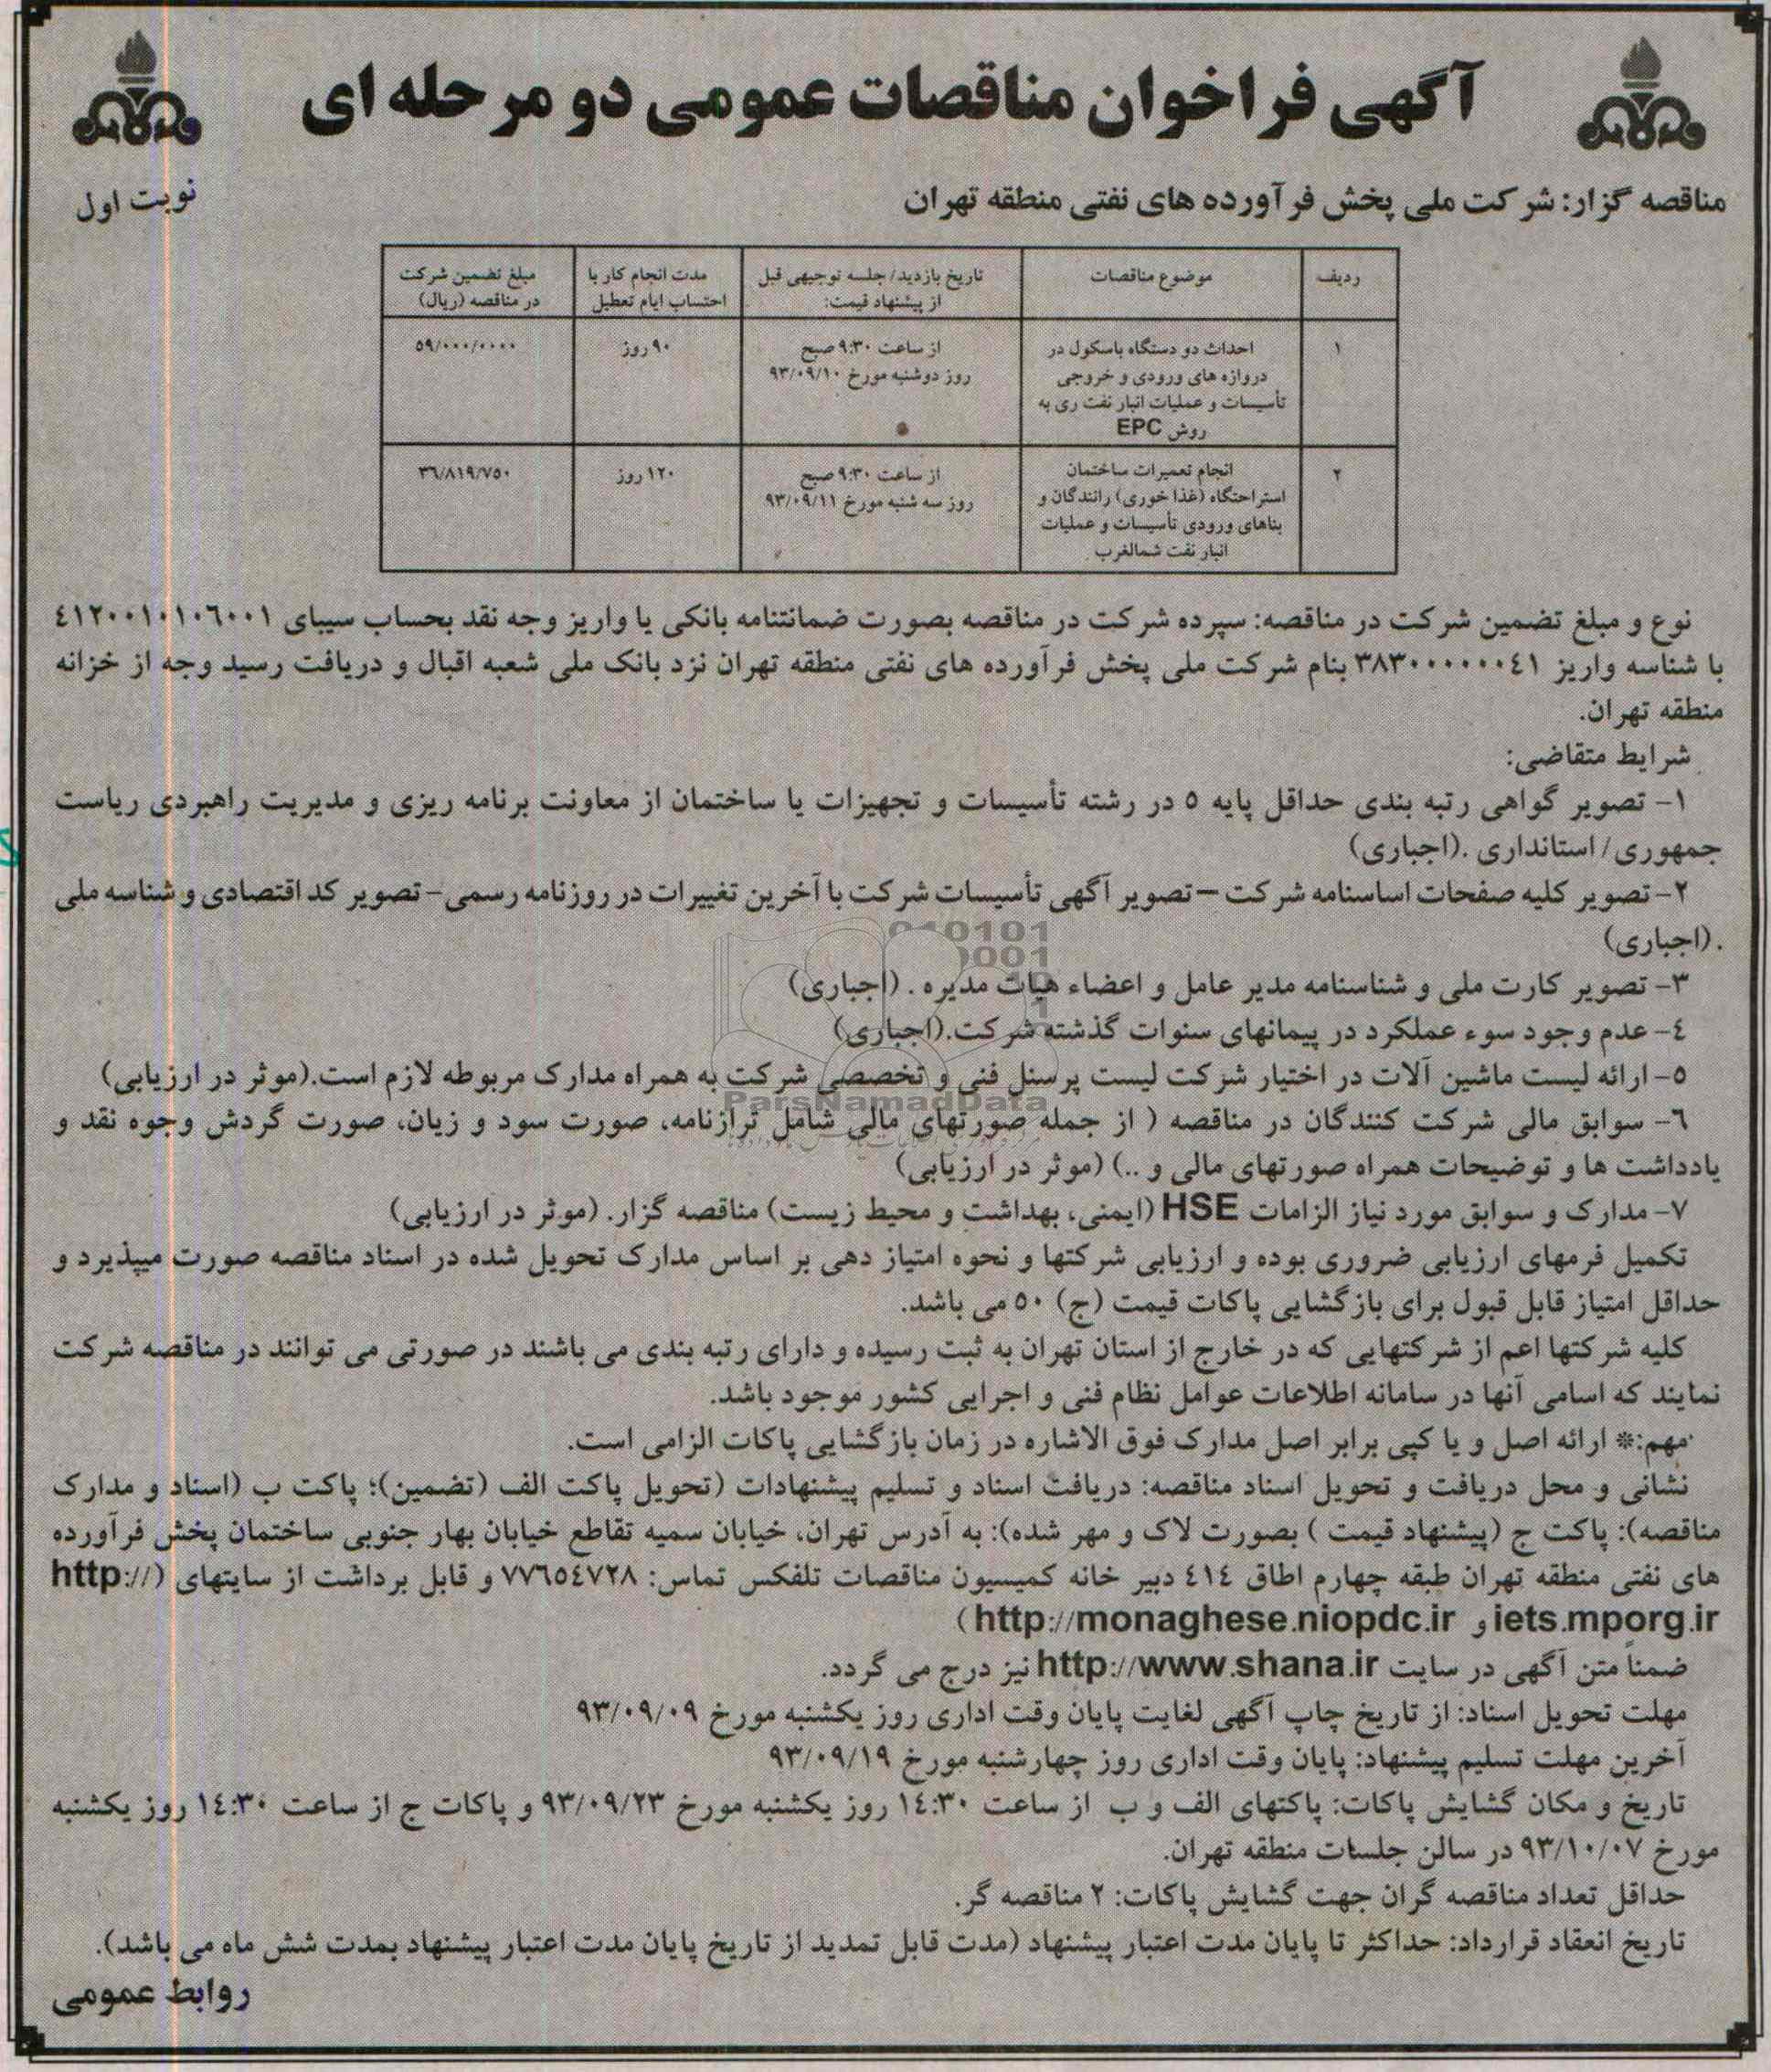 آگهی فراخوان مناقصات عمومی دو مرحله ای
مناقصه گزار: شرکت ملی پخش فرآورده های نفتی منطقه تهران
نوبت اول
ردیف
موضوع مناقصات
تاریخ بازدید/ جلسه توجیهی قبل
از پیشنهاد قیمت:
مدت انجام کار با
احتساب ایام تعطیل
مبلغ تضمین شرکت
در مناقصه (ریال)
۱
احداث دو دستگاه باسکول در
دروازه های ورودی و خروجی
تأسیسات و عملیات انبار نفت ری به
روش EPC
از ساعت ۹:۳۰ صبح
روز دوشنبه مورخ ۹۳/۰۹/۱۰
۹۰ روز
۵۹/۰۰۰/۰۰۰۰
۲
انجام تعمیرات ساختمان
استراحتگاه (غذا خوری) رانندگان و
بناهای ورودی تأسیسات و عملیات
انبار نفت شمالغرب
از ساعت ۹:۳۰ صبح
روز سه شنبه مورخ ۹۳/۰۹/۱۱
۱۲۰ روز
۳٦/۸۱۹/۷۵۰
نوع و مبلغ تضمین شرکت در مناقصه: سپرده شرکت در مناقصه بصورت ضمانتنامه بانکی یا واریز وجه نقد بحساب سیبای ٤۱۲۰۰۱۰۱۰٦۰۰۱
با شناسه واریز ۳۸۳۰۰۰۰۰۰۰٤۱ بنام شرکت ملی پخش فرآورده های نفتی منطقه تهران نزد بانک ملی شعبه اقبال و دریافت رسید وجه از خزانه
منطقه تهران.
شرایط متقاضی:
۱- تصویر گواهی رتبه بندی حداقل پایه ۵ در رشته تأسیسات و تجهیزات یا ساختمان از معاونت برنامه ریزی و مدیریت راهبردی ریاست
جمهوری/ استانداری .(اجباری)
۲- تصویر کلیه صفحات اساسنامه شرکت – تصویر آگهی تأسیسات شرکت با آخرین تغییرات در روزنامه رسمی- تصویر کد اقتصادی و شناسه ملی
.(اجباری)
۳- تصویر کارت ملی و شناسنامه مدیر عامل و اعضاء هیأت مدیره . (اجباری)
٤- عدم وجود سوء عملکرد در پیمانهای سنوات گذشته شرکت.(اجباری)
۵- ارائه لیست ماشین آلات در اختیار شرکت لیست پرسنل فنی و تخصصی شرکت به همراه مدارک مربوطه لازم است.(موثر در ارزیابی)
ParsNamadData
٦- سوابق مالی شرکت کنندگان در مناقصه ( از جمله صورتهای مالی شامل ترازنامه، صورت سود و زیان، صورت گردش وجوه نقد و
یادداشت ها و توضیحات همراه صورتهای مالی و ..) (موثر در ارزیابی)
۷- مدارک و سوابق مورد نیاز الزامات HSE (ایمنی، بهداشت و محیط زیست) مناقصه گزار. (موثر در ارزیابی)
تکمیل فرمهای ارزیابی ضروری بوده و ارزیابی شرکتها و نحوه امتیاز دهی بر اساس مدارک تحویل شده در اسناد مناقصه صورت میپذیرد و
حداقل امتیاز قابل قبول برای بازگشایی پاکات قیمت (ج) ۵۰ می باشد.
کلیه شرکتها اعم از شرکتهایی که در خارج از استان تهران به ثبت رسیده و دارای رتبه بندی می باشند در صورتی می توانند در مناقصه شرکت
نمایند که اسامی آنها در سامانه اطلاعات عوامل نظام فنی و اجرایی کشور موجود باشد.
مهم:* ارائه اصل و یا کپی برابر اصل مدارک فوق الاشاره در زمان بازگشایی پاکات الزامی است.
نشانی و محل دریافت و تحویل اسناد مناقصه: دریافت اسناد و تسلیم پیشنهادات (تحویل پاکت الف (تضمین)؛ پاکت ب (اسناد و مدارک
مناقصه): پاکت ج (پیشنهاد قیمت ) بصورت لاک و مهر شده): به آدرس تهران، خیابان سمیه تقاطع خیابان بهار جنوبی ساختمان پخش فرآورده
های نفتی منطقه تهران طبقه چهارم اطاق ٤۱٤ دبیر خانه کمیسیون مناقصات تلفکس تماس: ۷۷٦۵٤۷۲۸ و قابل برداشت از سایتهای (http://
iets.mporg.ir و http://monaghese.niopdc.ir)
ضمناً متن آگهی در سایت http://www.shana.ir نیز درج می گردد.
مهلت تحویل اسناد: از تاریخ چاپ آگهی لغایت پایان وقت اداری روز یکشنبه مورخ ۹۳/۰۹/۰۹
آخرین مهلت تسلیم پیشنهاد: پایان وقت اداری روز چهارشنبه مورخ ۹۳/۰۹/۱۹
تاریخ و مکان گشایش پاکات: پاکتهای الف و ب از ساعت ۱٤:۳۰ روز یکشنبه مورخ ۹۳/۰۹/۲۳ و پاکات ج از ساعت ۱٤:۳۰ روز یکشنبه
مورخ ۹۳/۱۰/۰۷ در سالن جلسات منطقه تهران.
حداقل تعداد مناقصه گران جهت گشایش پاکات: ۲ مناقصه گر.
تاریخ انعقاد قرارداد: حداکثر تا پایان مدت اعتبار پیشنهاد (مدت قابل تمدید از تاریخ پایان مدت اعتبار پیشنهاد بمدت شش ماه می باشد).
روابط عمومی